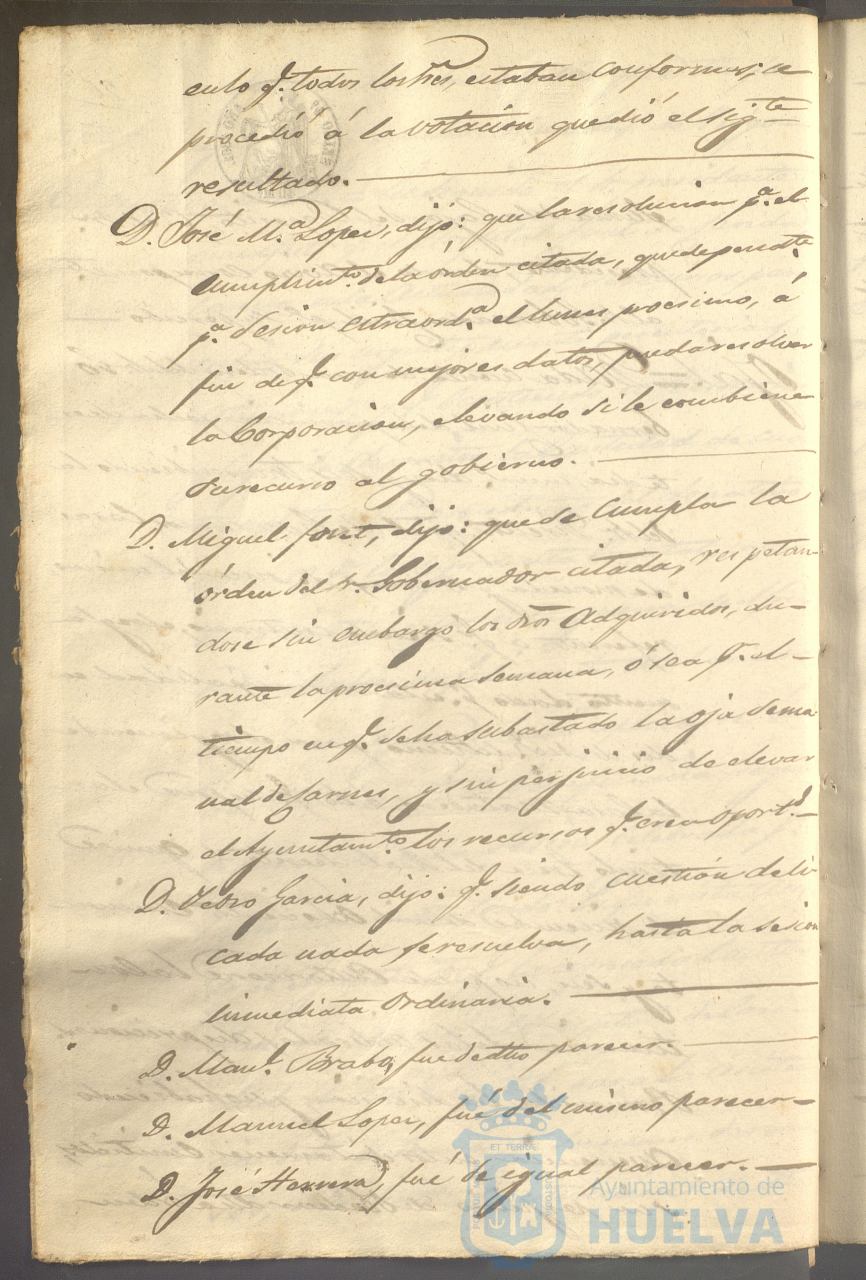 en lo q.e todos los Sres, estaban conformes, se
procedió á la votacion que dió el sigte
resultado.
D. José M.a Lopez, dijo: que la resolucion p.a el
cumplimto. de la órden citada, quede pendte.
p.a sesion estraord.a el lunes procsimo, á
fin de q.e con mejores datos, pueda resolver
la Corporacion, elevando si le combiene
su recurso al gobierno.
D. Miguel Font, dijo: que se cumpla la
órden del Sr. Gobernador citada, respetan-
dose sin embargo los dros Adquiridos, du-
rante la procsima semana, ó sea p.r el
tiempo en q.e se ha subastado la oja sema
nal de Carnes, y sin perjuicio de elevar
el Ayuntamto. los recursos q.e crea oport.s
D. Pedro Garcia, dijo: q.e siendo cuestión deli
cada nada se resuelva, hasta la sesion
inmediata ordinaria.
D. Man.l Brabo, fue de dho parecer.
D. Manuel Lopez, fué del mismo parecer
D. José Herrera, fué de igual parecer.
ET TERRAE
Ayuntamiento de
HUELVA